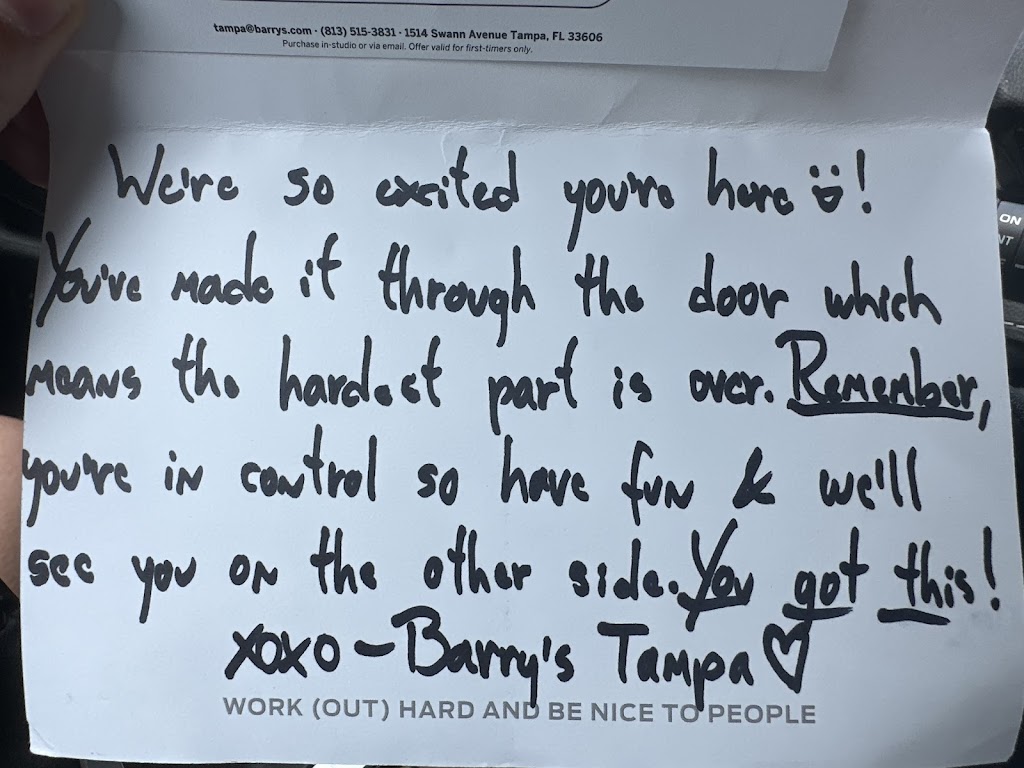 tampa@barrys.com · (813) 515-3831 · 1514 Swann Avenue Tampa, FL 33606
Purchase in-studio or via email. Offer valid for first-timers only.
We're so excited you're here !
You've made it through the door which
means the hardest part is over. Remember,
you're in control so have fun & we'll
see you on the other side. You got this!
xoxo - Barry's Tampa ♡
WORK (OUT) HARD AND BE NICE TO PEOPLE
ON
NT